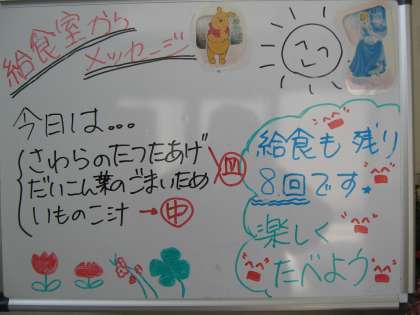 給食室から
メッセージ
今日は...
さわらのたつたあげ
だいこん葉のごまいため
いものこ汁 → 中
給食も残り
8回です。
楽しく
たべよう